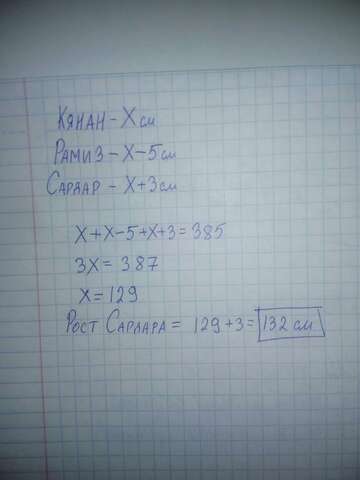 Кянан - X см
Рамиз - X - 5 см
Сардар - X + 3 см
X + X - 5 + X + 3 = 385
3X = 387
X = 129
Рост Сардара = 129 + 3 = 132 см